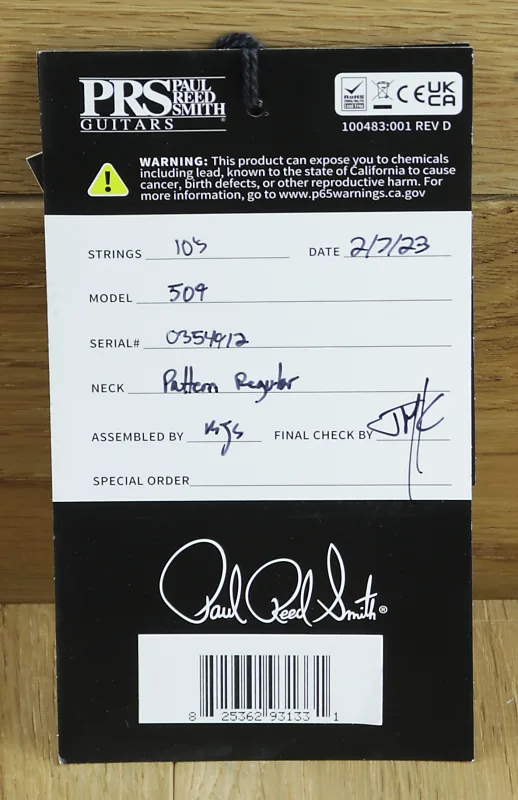 PRS PAUL REED SMITH
GUITARS
RoHS
CE UK CA
100483:001 REV D
WARNING: This product can expose you to chemicals
including lead, known to the state of California to cause
cancer, birth defects, or other reproductive harm. For
more information, go to www.p65warnings.ca.gov
STRINGS 10's DATE 2/7/23
MODEL 509
SERIAL# 0354912
NECK Pattern Regular
ASSEMBLED BY KJS FINAL CHECK BY JMK
SPECIAL ORDER
Paul Reed Smith®
8 25362 93133 1